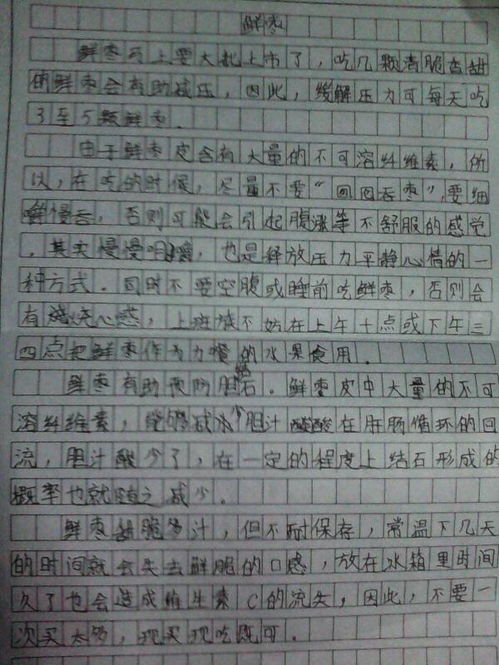 鲜枣
鲜枣马上要大批上市了，吃几颗清脆香甜
的鲜枣会有助减压，因此，缓解压力可每天吃
3至5颗鲜枣．
由于鲜枣皮含有大量的不可溶纤维素，所
以，在吃的时候，尽量不要“囫囵吞枣”，要细
嚼慢舌，否则可能会引起腹涨等不舒服的感觉
．其实慢慢咀嚼，也是释放压力平静心情的一
种方式．同时不要空腹或睡前吃鲜枣，否则会
有烧心感，上班族不妨在上午十点或下午三
四点把鲜枣作为加餐的水果食用．
鲜枣有助预防胆结石．鲜枣皮中大量的不可
溶纤维素，能够减少胆汁酸在肝肠循环的回
流，胆汁酸少了，在一定的程度上结石形成的
概率也就随之减少．
鲜枣甜脆多汁，但不耐保存，常温下几天
的时间就会失去鲜脆的口感，放在冰箱里时间
久了也会造成维生素C的流失，因此，不要一
次买太多，现买现吃既可．